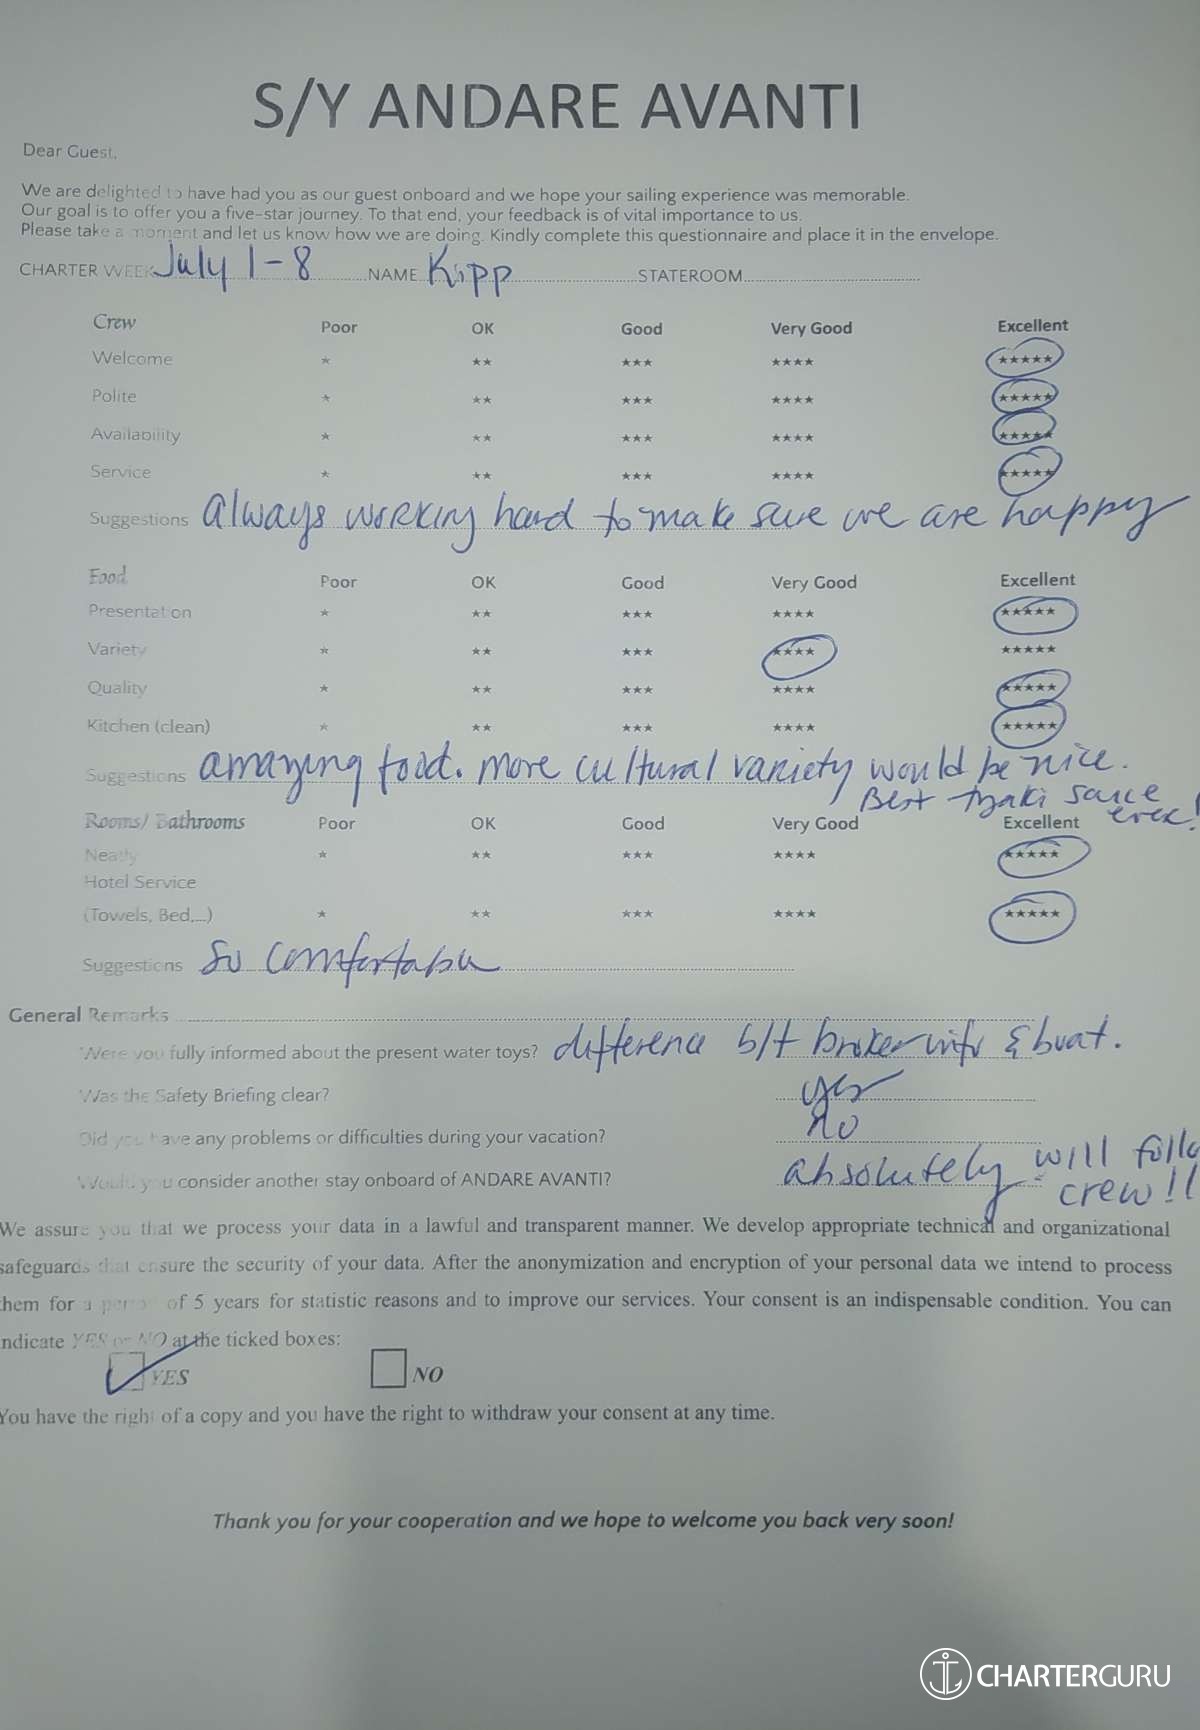 S/Y ANDARE AVANTI
Dear Guest,
We are delighted to have had you as our guest onboard and we hope your sailing experience was memorable.
Our goal is to offer you a five-star journey. To that end, your feedback is of vital importance to us.
Please take a moment and let us know how we are doing. Kindly complete this questionnaire and place it in the envelope.
CHARTER WEEK July 1-8 NAME Kipp STATEROOM
Crew Poor OK Good Very Good Excellent
Welcome * ** *** **** *****
Polite * ** *** **** *****
Availability * ** *** **** *****
Service * ** *** **** *****
Suggestions always working hard to make sure we are happy
Food Poor OK Good Very Good Excellent
Presentation * ** *** **** *****
Variety * ** *** **** *****
Quality * ** *** **** *****
Kitchen (clean) * ** *** **** *****
Suggestions amazing food. more cultural variety would be nice.
Best tzaki sauce ever!
Rooms/ Bathrooms Poor OK Good Very Good Excellent
Neatly * ** *** **** *****
Hotel Service
(Towels, Bed,...) * ** *** **** *****
Suggestions So comfortable
General Remarks
Were you fully informed about the present water toys? difference b/t broker info & boat.
Was the Safety Briefing clear? yes
Did you have any problems or difficulties during your vacation? no
Would you consider another stay onboard of ANDARE AVANTI? absolutely will follo
crew!!
We assure you that we process your data in a lawful and transparent manner. We develop appropriate technical and organizational
safeguards that ensure the security of your data. After the anonymization and encryption of your personal data we intend to process
them for a period of 5 years for statistic reasons and to improve our services. Your consent is an indispensable condition. You can
indicate YES or NO at the ticked boxes:
YES NO
You have the right of a copy and you have the right to withdraw your consent at any time.
Thank you for your cooperation and we hope to welcome you back very soon!
CHARTERGURU